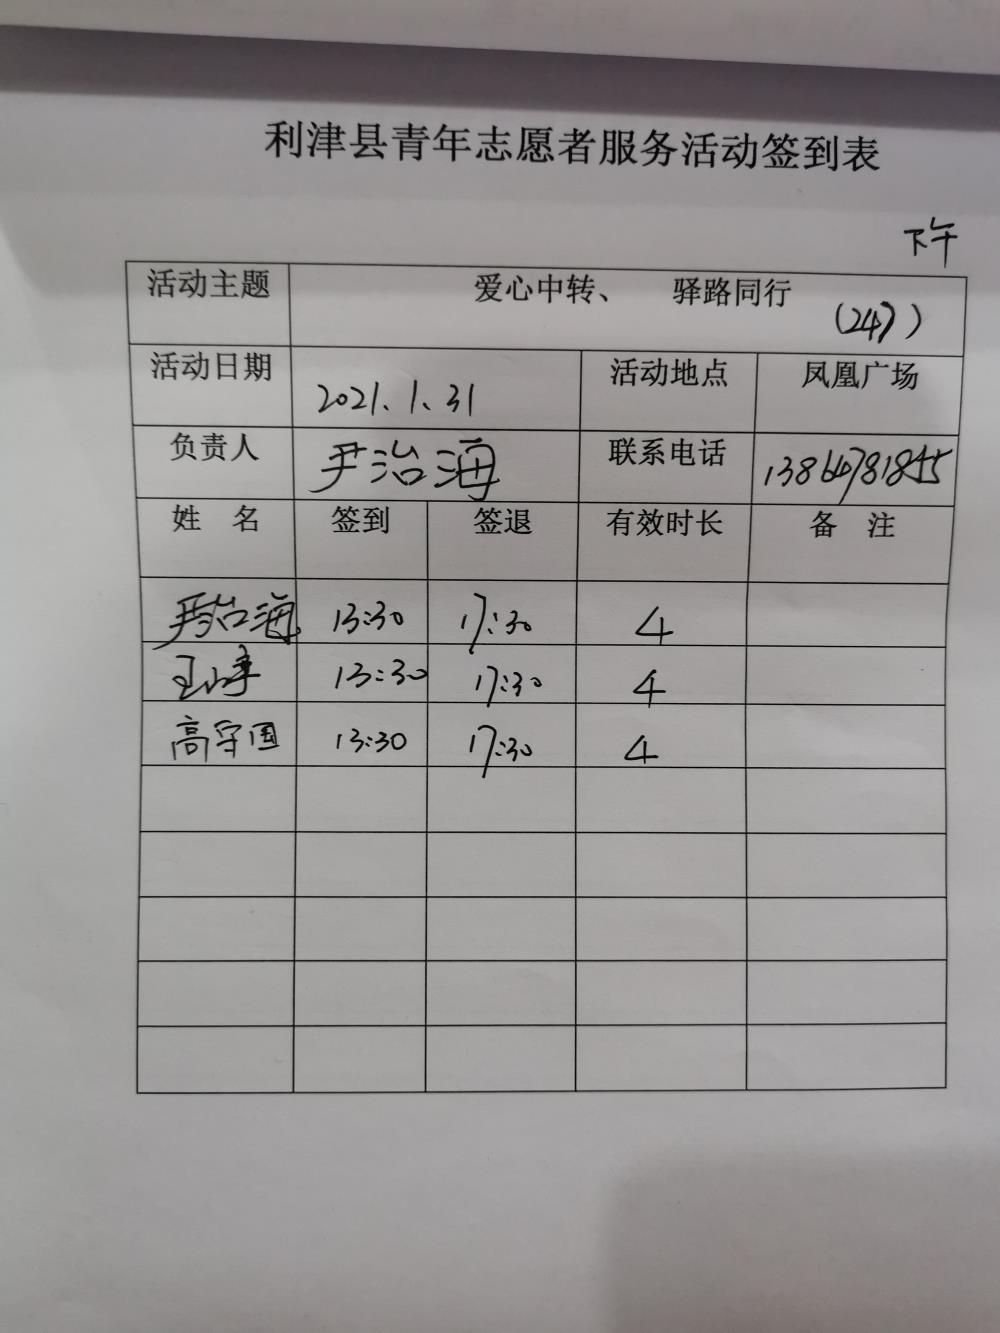 利津县青年志愿者服务活动签到表
下午
活动主题 爱心中转、 驿路同行 (247)
活动日期 2021.1.31 活动地点 凤凰广场
负责人 尹治海 联系电话
姓 名 签到 签退 有效时长 备 注
尹治海 13:30 17:30 4
13:30 17:30 4
高守国 13:30 17:30 4